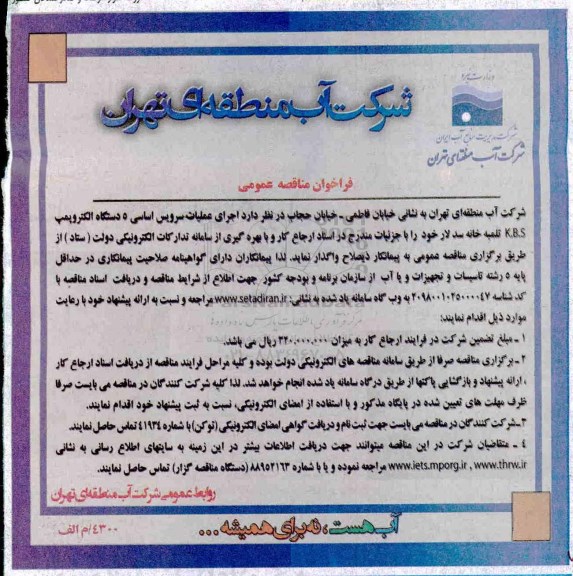 وزارت نیرو
شرکت مدیریت منابع آب ایران
شرکت آب منطقه‌ای تهران
شرکت آب منطقه‌ای تهران
فراخوان مناقصه عمومی
شرکت آب منطقه‌ای تهران به نشانی خیابان فاطمی - خیابان حجاب در نظر دارد اجرای عملیات سرویس اساسی ۵ دستگاه الکتروپمپ
K.B.S تلمبه خانه سد لار خود را با جزئیات مندرج در اسناد ارجاع کار و با بهره گیری از سامانه تدارکات الکترونیکی دولت ( ستاد ) از
طریق برگزاری مناقصه عمومی به پیمانکار ذیصلاح واگذار نماید. لذا پیمانکاران دارای گواهینامه صلاحیت پیمانکاری در حداقل
پایه ۵ رشته تاسیسات و تجهیزات و یا آب از سازمان برنامه و بودجه کشور جهت اطلاع از شرایط مناقصه و دریافت اسناد مناقصه با
کد شناسه ۲۰۹۸۰۰۱۰۲۵۰۰۰۰۴۷ به وب گاه سامانه یاد شده به نشانی: www.setadiran.ir مراجعه و نسبت به ارائه پیشنهاد خود با رعایت
موارد ذیل اقدام نمایند:
۱ - مبلغ تضمین شرکت در فرایند ارجاع کار به میزان ۳۲۰,۰۰۰,۰۰۰ ریال می باشد.
۲ - برگزاری مناقصه صرفا از طریق سامانه مناقصه های الکترونیکی دولت بوده و کلیه مراحل فرایند مناقصه از دریافت اسناد ارجاع کار
، ارائه پیشنهاد و بازگشایی پاکتها از طریق درگاه سامانه یاد شده انجام خواهد شد. لذا کلیه شرکت کنندگان در مناقصه می بایست صرفا
ظرف مهلت های تعیین شده در پایگاه مذکور و با استفاده از امضای الکترونیکی، نسبت به ثبت پیشنهاد خود اقدام نمایند.
۳ - شرکت کنندگان در مناقصه می بایست جهت ثبت نام و دریافت گواهی امضای الکترونیکی (توکن) با شماره ۴۱۹۳۴ تماس حاصل نمایند.
۴ - متقاضیان شرکت در این مناقصه میتوانند جهت دریافت اطلاعات بیشتر در این زمینه به سایتهای اطلاع رسانی به نشانی
www.iets.mporg.ir , www.thrw.ir مراجعه نموده و یا با شماره ۸۸۹۵۲۱۹۳ (دستگاه مناقصه گزار) تماس حاصل نمایند.
روابط عمومی شرکت آب منطقه‌ای تهران
آب هست ، نه برای همیشه ...
۴۳۰۰/م الف